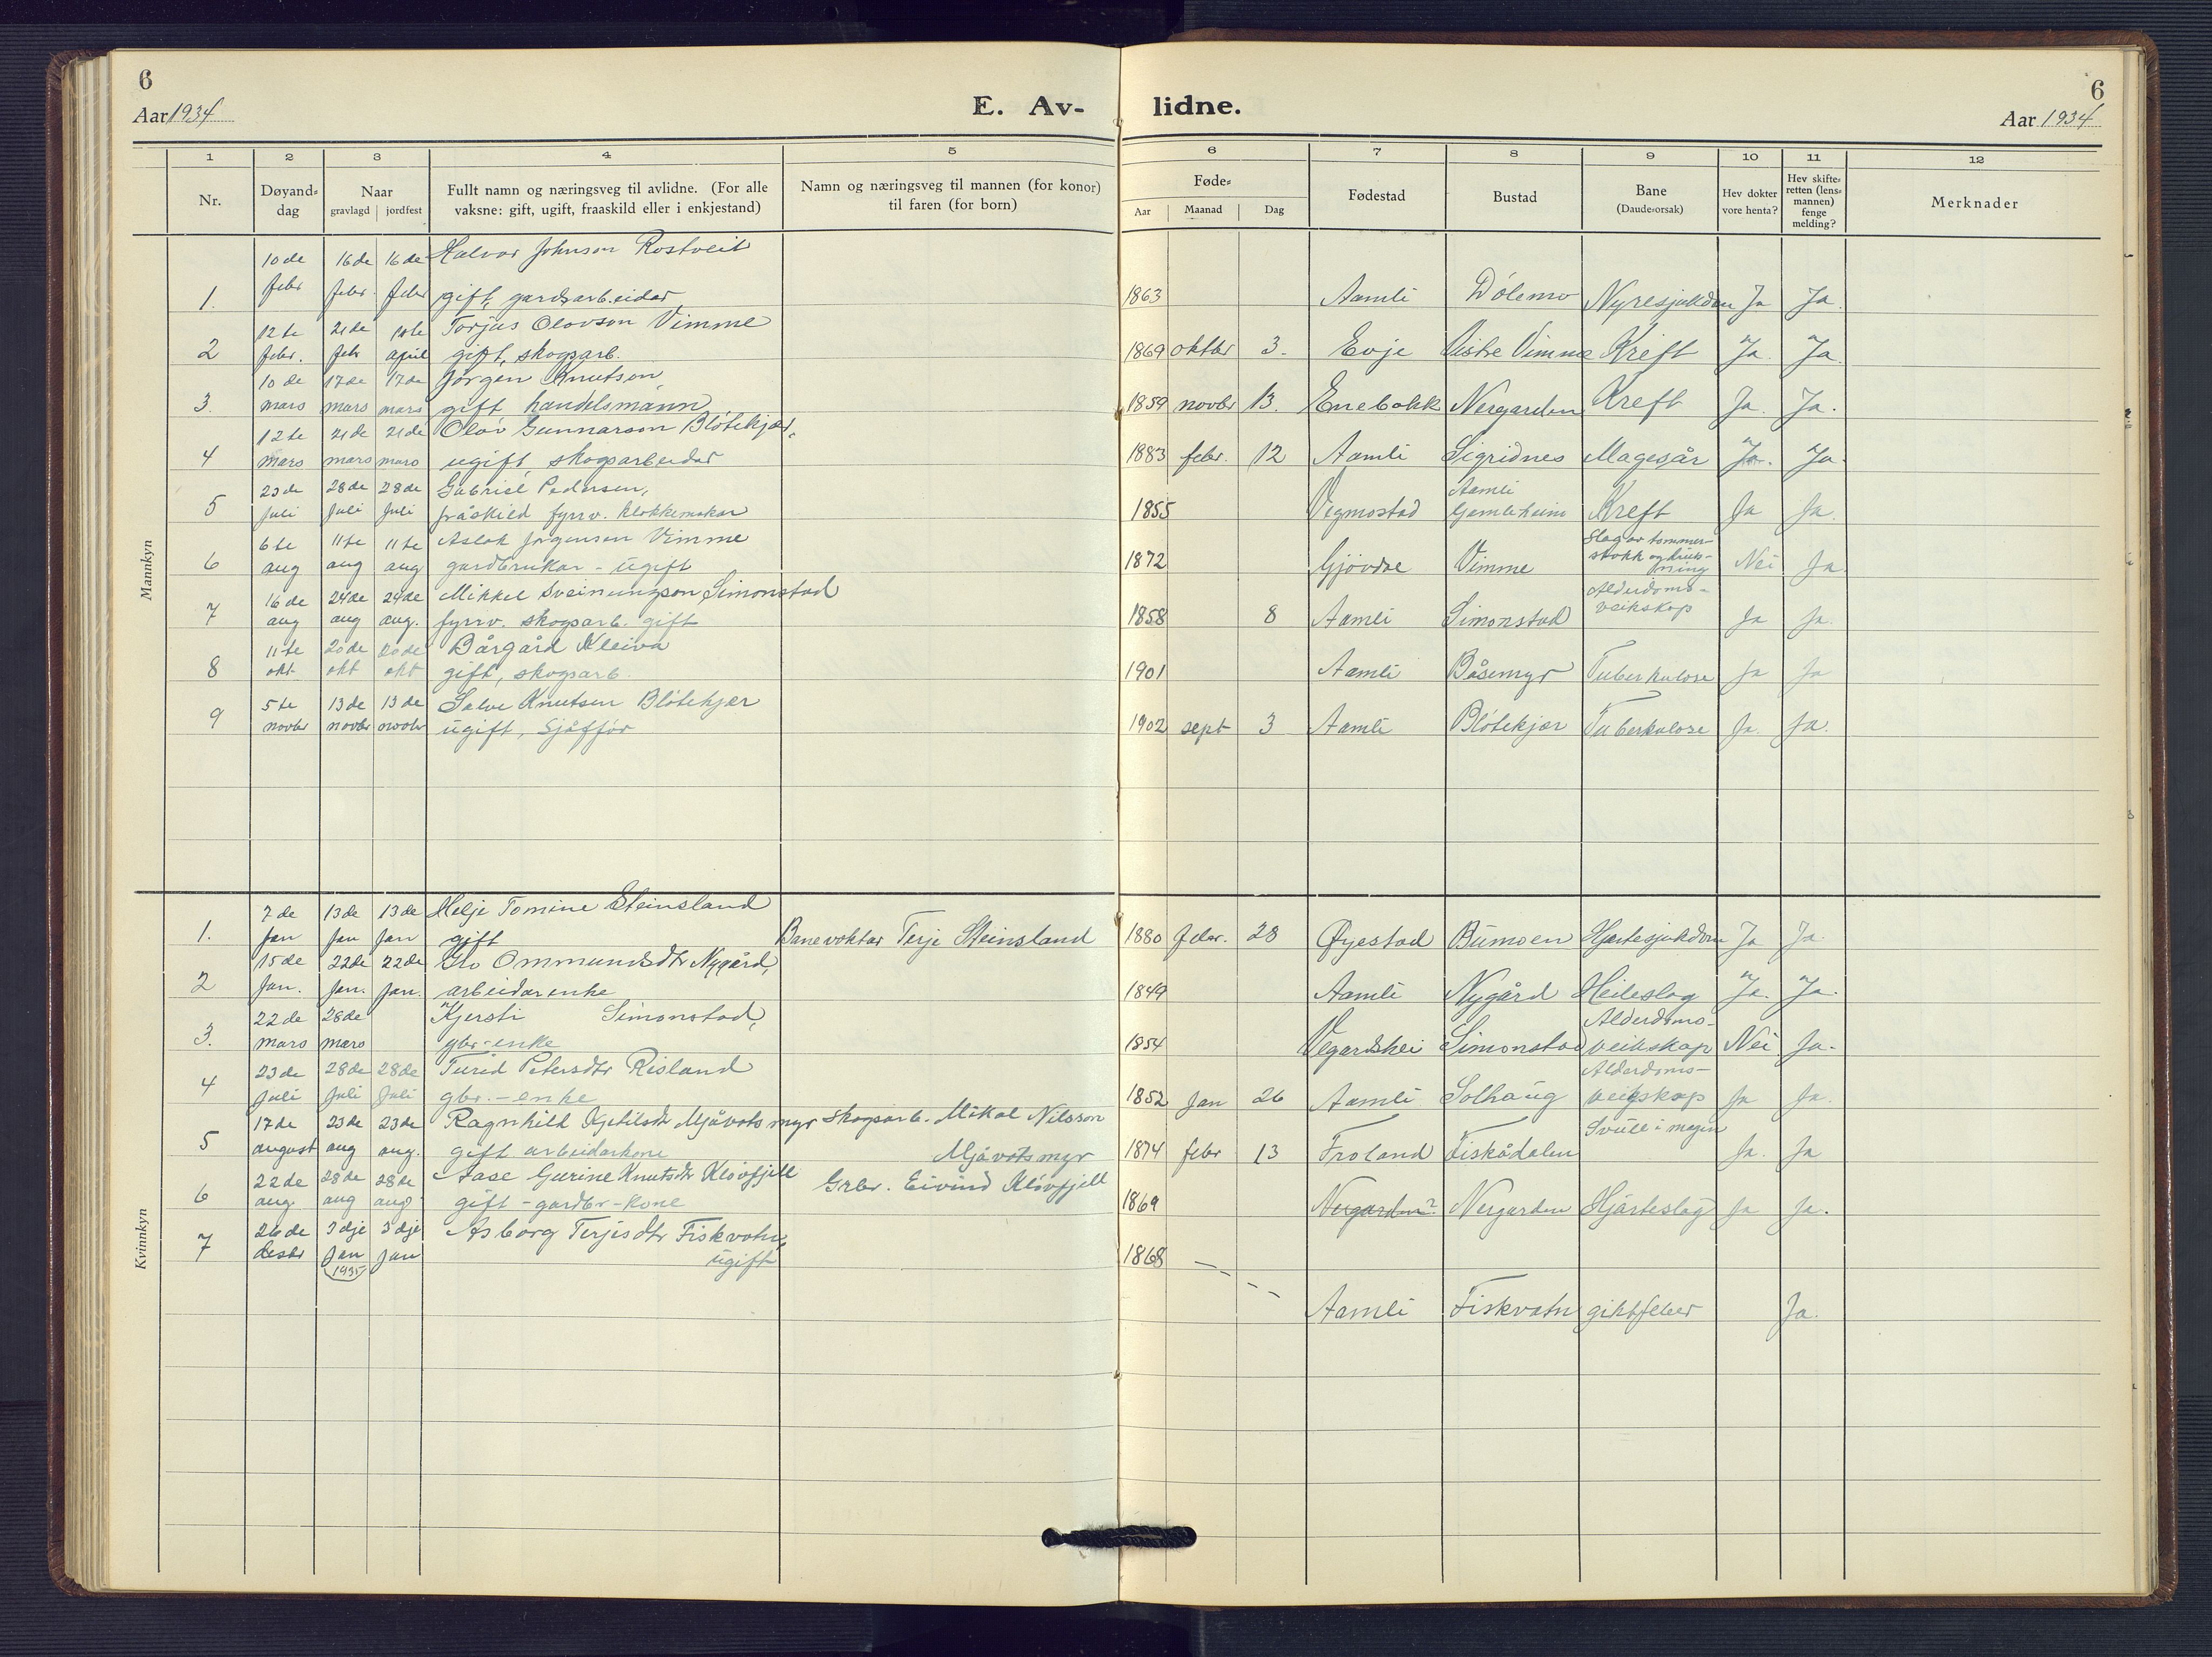 6
Aar 1934
E. Av-
lidne.
6
Aar 1934
1 2 3 4 5 6 7 8 9 10 11 12
Nr.
Døyand-
dag
Naar
gravlagd | jordfest
Fullt namn og næringsveg til avlidne. (For alle
vaksne: gift, ugift, fraaskild eller i enkjestand)
Namn og næringsveg til mannen (for konor)
til faren (for born)
Føde-
Aar Maanad Dag
Fødestad
Bustad
Bane
(Daude-orsak)
Hev dokter
vore henta?
Hev skifte-
retten (lens-
mannen)
fenge
melding?
Merknader
Mannkyn
10de 16de 16de Halvor Johnson Rostveit
1. febr febr. febr gift, gardsarbeidar 1863 Aamli Dölemo Nyresjukdom Ja Ja.
12te 21de 10te Torjus Olovson Vimme
2 febr. febr april gift, skogsarb. 1869 oktbr 3. Evje Vimme Kreft Ja. Ja.
10de 17de 17de Jörgen Knutson,
3. mars mars mars gift handelsmann 1859 novbr 13. Enebakk Nergarden Kreft Ja. Ja.
12te 21de 21de Olav Gunnarson Blötekjær,
4 mars mars mars ugift, skogsarbeidar 1883 febr. 12 Aamli Sigridnes Magesår Ja. Ja.
23de 28de 28de Gabriel Pedersen, Aamli
5 juli juli juli fråskild fyrrv. klokkemakar 1855 Vegmostad Gamleheim Kreft Ja Ja.
6te 11te 11te Aslak Jörgenson Vimme Slag av tømmer-
stokk og
6 aug aug aug gardbrukar - ugift 1872 Gjövdre Vimme Nei Ja.
16de 24de 24de Mikkel Sveinungson Simonstad Alderdoms-
veikskap
7 aug aug aug. fyrrv. skogsarb. gift 1858 8 Aamli Simonstad Ja Ja.
11te 20de 20de Bårgård Kleiva
8 okt. okt okt gift, skogsarb. 1901 Aamli Båsemyr Tuberkulose Ja Ja
5te 13de 13de Salve Knutsen Blötekjær
9 novbr novbr novbr ugift, Sjåffør 1902 sept 3 Aamli Blötekjær Tuberkulose Ja. Ja.
Kvinnkyn
7de 13de 13de Helje Tomine Steinsland
1. jan jan jan gift Banevoktar Terje Steinsland 1880 febr. 28 Øyestad Bumoen Hjertesjukdom Ja Ja.
15de 22de 22de Gro Ommundsdtr Nygård,
2 jan. jan. jan. arbeidarenke 1849 Aamli Nygård Heileslag Ja. Ja.
22de 28de Kjersti Simonstad, Alderdoms-
3. mars mars gbr-enke 1854 Vegardshei Simonstad veikskap Nei Ja.
23de 28de 28de Turid Petersdtr Risland Alderdoms-
4 juli juli juli gbr.-enke 1852 jan 26 Aamli Solhaug veikskap Ja Ja.
17de 23de 23de Ragnhild Kjetilsdtr Mjåvatsmyr skogsarb. Mikal Nilsson Svull i magen
5 august aug aug. gift arbeidarkone Mjåvatsmyr 1874 febr 13 Froland Fiskådalen Ja. Ja
22de 28de 28de Aase Gurine Knutsdtr Klövfjell Grbr. Eivind Klövfjell
6 aug. aug aug gift - gardbr-kone 1869 Nergarden? Nergarden Hjarteslag Ja Ja.
26de 3dje 3dje Asborg Terjesdtr Fiskvatn,
7 desbr jan jan ugift 1868
(1935)
Aamli Fiskvatn giktfeber Ja.